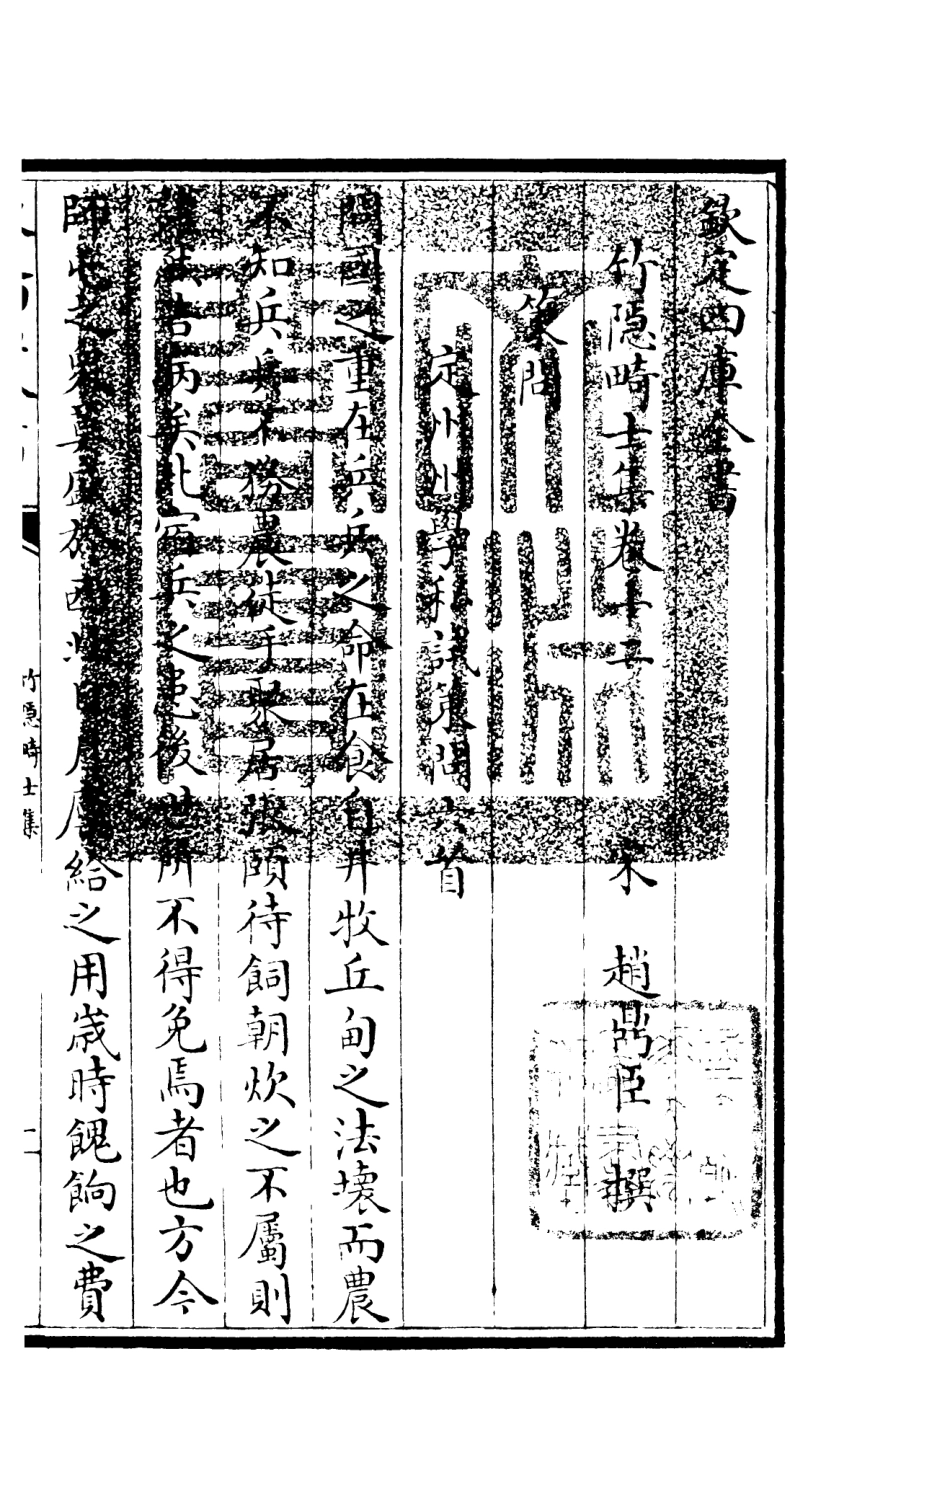 欽定四庫全書
竹隱畸士集卷十二
宋 趙鼎臣 撰
策問
定州州學私試策問六首
問國之重在兵兵之命在食自井牧丘甸之法壞而農
不知兵兵不務農徒手聚居張頤待飼朝炊之不屬則
告病矣此宿兵之患後世所不得免焉者也方今
師 之眾莫盛於西 給之用歲時餽餉之費
竹隱畸士集
一